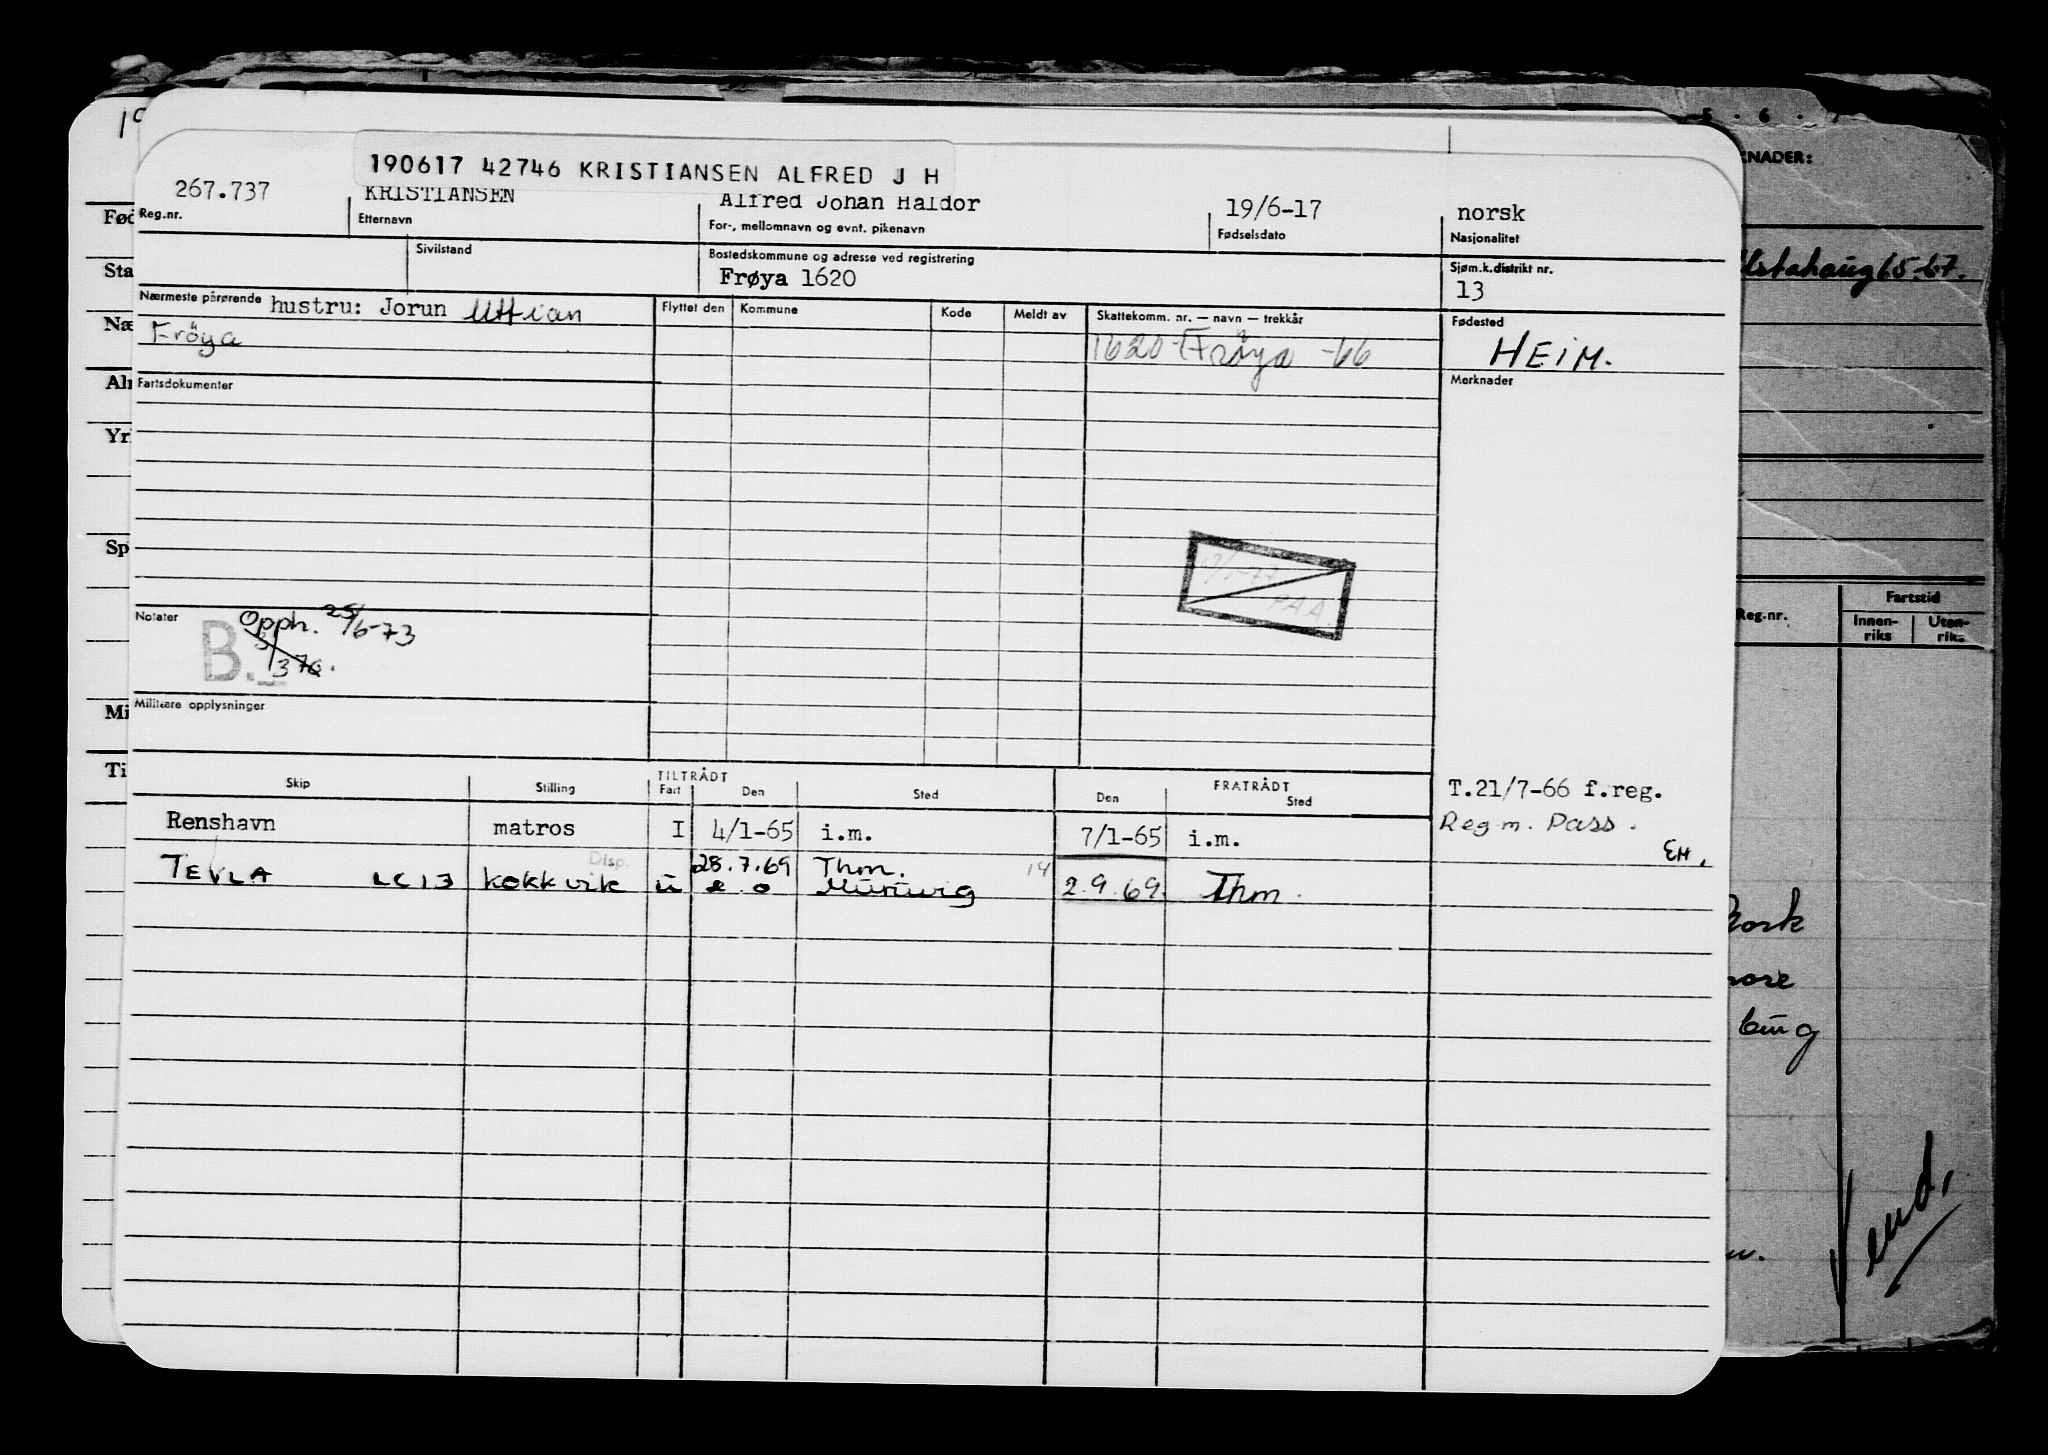 190617 42746 KRISTIANSEN ALFRED J H
267.737 KRISTIANSEN Alfred Johan Haldor 19/6-17 norsk
Reg.nr. Etternavn For-, mellomnavn og evnt. pikenavn Fødselsdato Nasjonalitet
Sivilstand Bostedskommune og adresse ved registrering Sjøm.k.distrikt nr.
Frøya 1620 13
Nærmeste pårørende hustru: Jorun Uttian Flyttet den Kommune Kode Meldt av Skattekomm. nr. — navn — trekkår Fødested
Fröya 1620 Frøya -66 HEIM.
Fartsdokumenter Merknader
Notater Opph. 25/6-73
B.
Militære opplysninger
Skip Stilling TILTRÅDT Fart Den Sted FRATRÅDT Den Sted
T.21/7-66 f.reg.
Renshavn matros I 4/1-65 i.m. 7/1-65 i.m. Reg m. Pass.
EH.
Disp. 28.7.69 Thm. 14
TEVLA LC13 kokkvik u Muruvig 2.9.69. Thm.
KNADER:
65-67.
Reg.nr. Fartstid
Innen-riks Uten-riks
Vend.
Fød
Sta
Næ
Alm
Yr
Sp
Mi
Ti